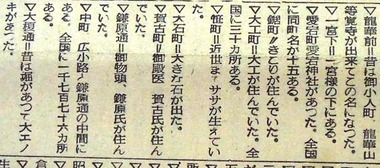 龍華前＝昔は御小人町、龍華山
等覚寺が出来てこの名になつた。
一宮下＝一宮様の下にある。
愛宕町愛宕神社があつた。全国
に同町名が十五ある。
鋸町＝のこりが住んでいた。
大工町＝大工が住んでいた。全
国に三十カ所ある。
笹町＝近世までササが生えてい
た。
大石町＝大きな石が出た。
賀古町＝御殿医　賀古氏が住ん
でいた。
鎌原通＝御物頭　鎌原氏が住ん
でいた。
中町　広小路と鎌原通の中間に
ある。全国に一千七百七十六カ所
ある。
大榎通＝昔は堀があつて大エノ
キがあつた。